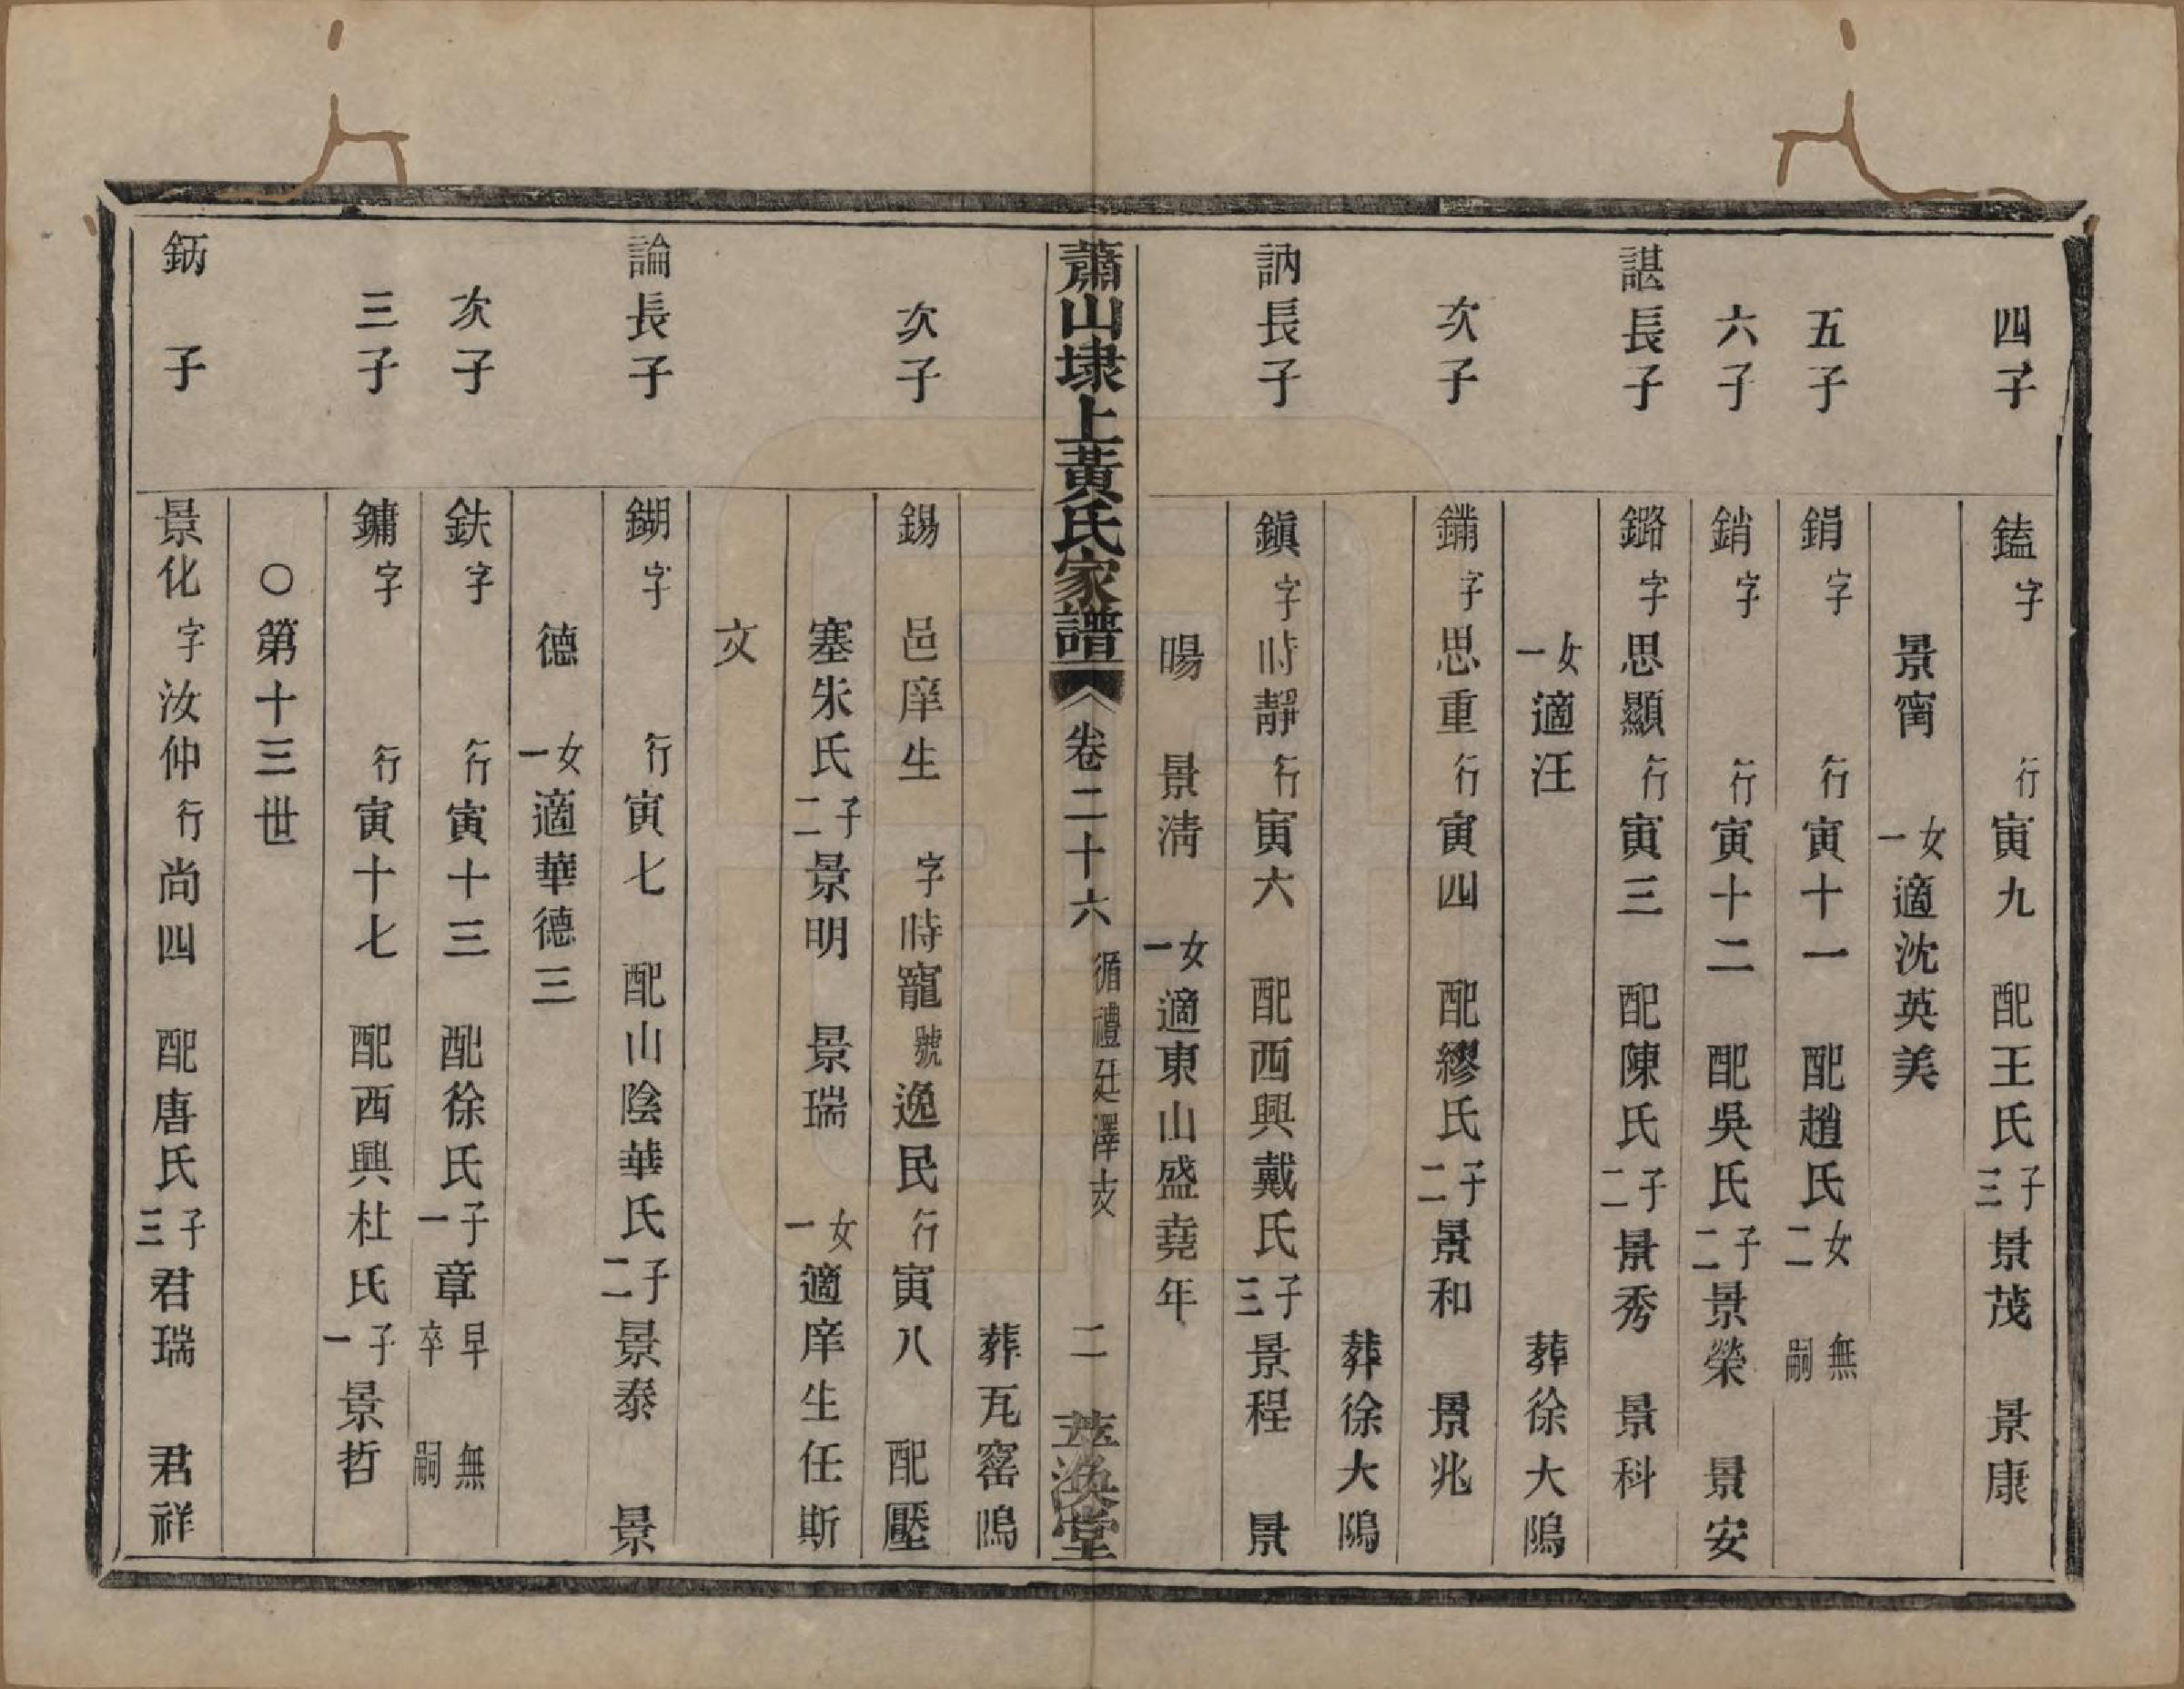 四子 鎑字 行寅九 配王氏子三景茂 景康
景甯 女一適沈英美
五子 鋗字 行寅十一 配趙氏女二 無嗣
六子 銷字 行寅十二 配吳氏子二景榮 景安
諶長子 鏴字思顯行寅三 配陳氏子二景秀 景科
女一適汪 葬徐大隖
次子 鏽字思重行寅四 配繆氏子二景和 景兆
葬徐大隖
訥長子 鎭字時靜行寅六 配西興戴氏子三景程 景
暘 景淸 女一適東山盛堯年
蕭山埭上黃氏家譜 卷二十六 循禮廷澤支 二 萃渙堂
葬瓦窰隖
次子 錫 邑庠生 字時寵號逸民行寅八 配壓
塞朱氏子二景明 景瑞 女一適庠生任斯
文
論長子 鍸字 行寅七 配山陰華氏子二景泰 景
德 女一適華德三
次子 鈇字 行寅十三 配徐氏子一章早卒 無嗣
三子 鏞字 行寅十七 配西興杜氏子一景哲
○第十三世
鈵子 景化字汝仲行尚四 配唐氏子三君瑞 君祥